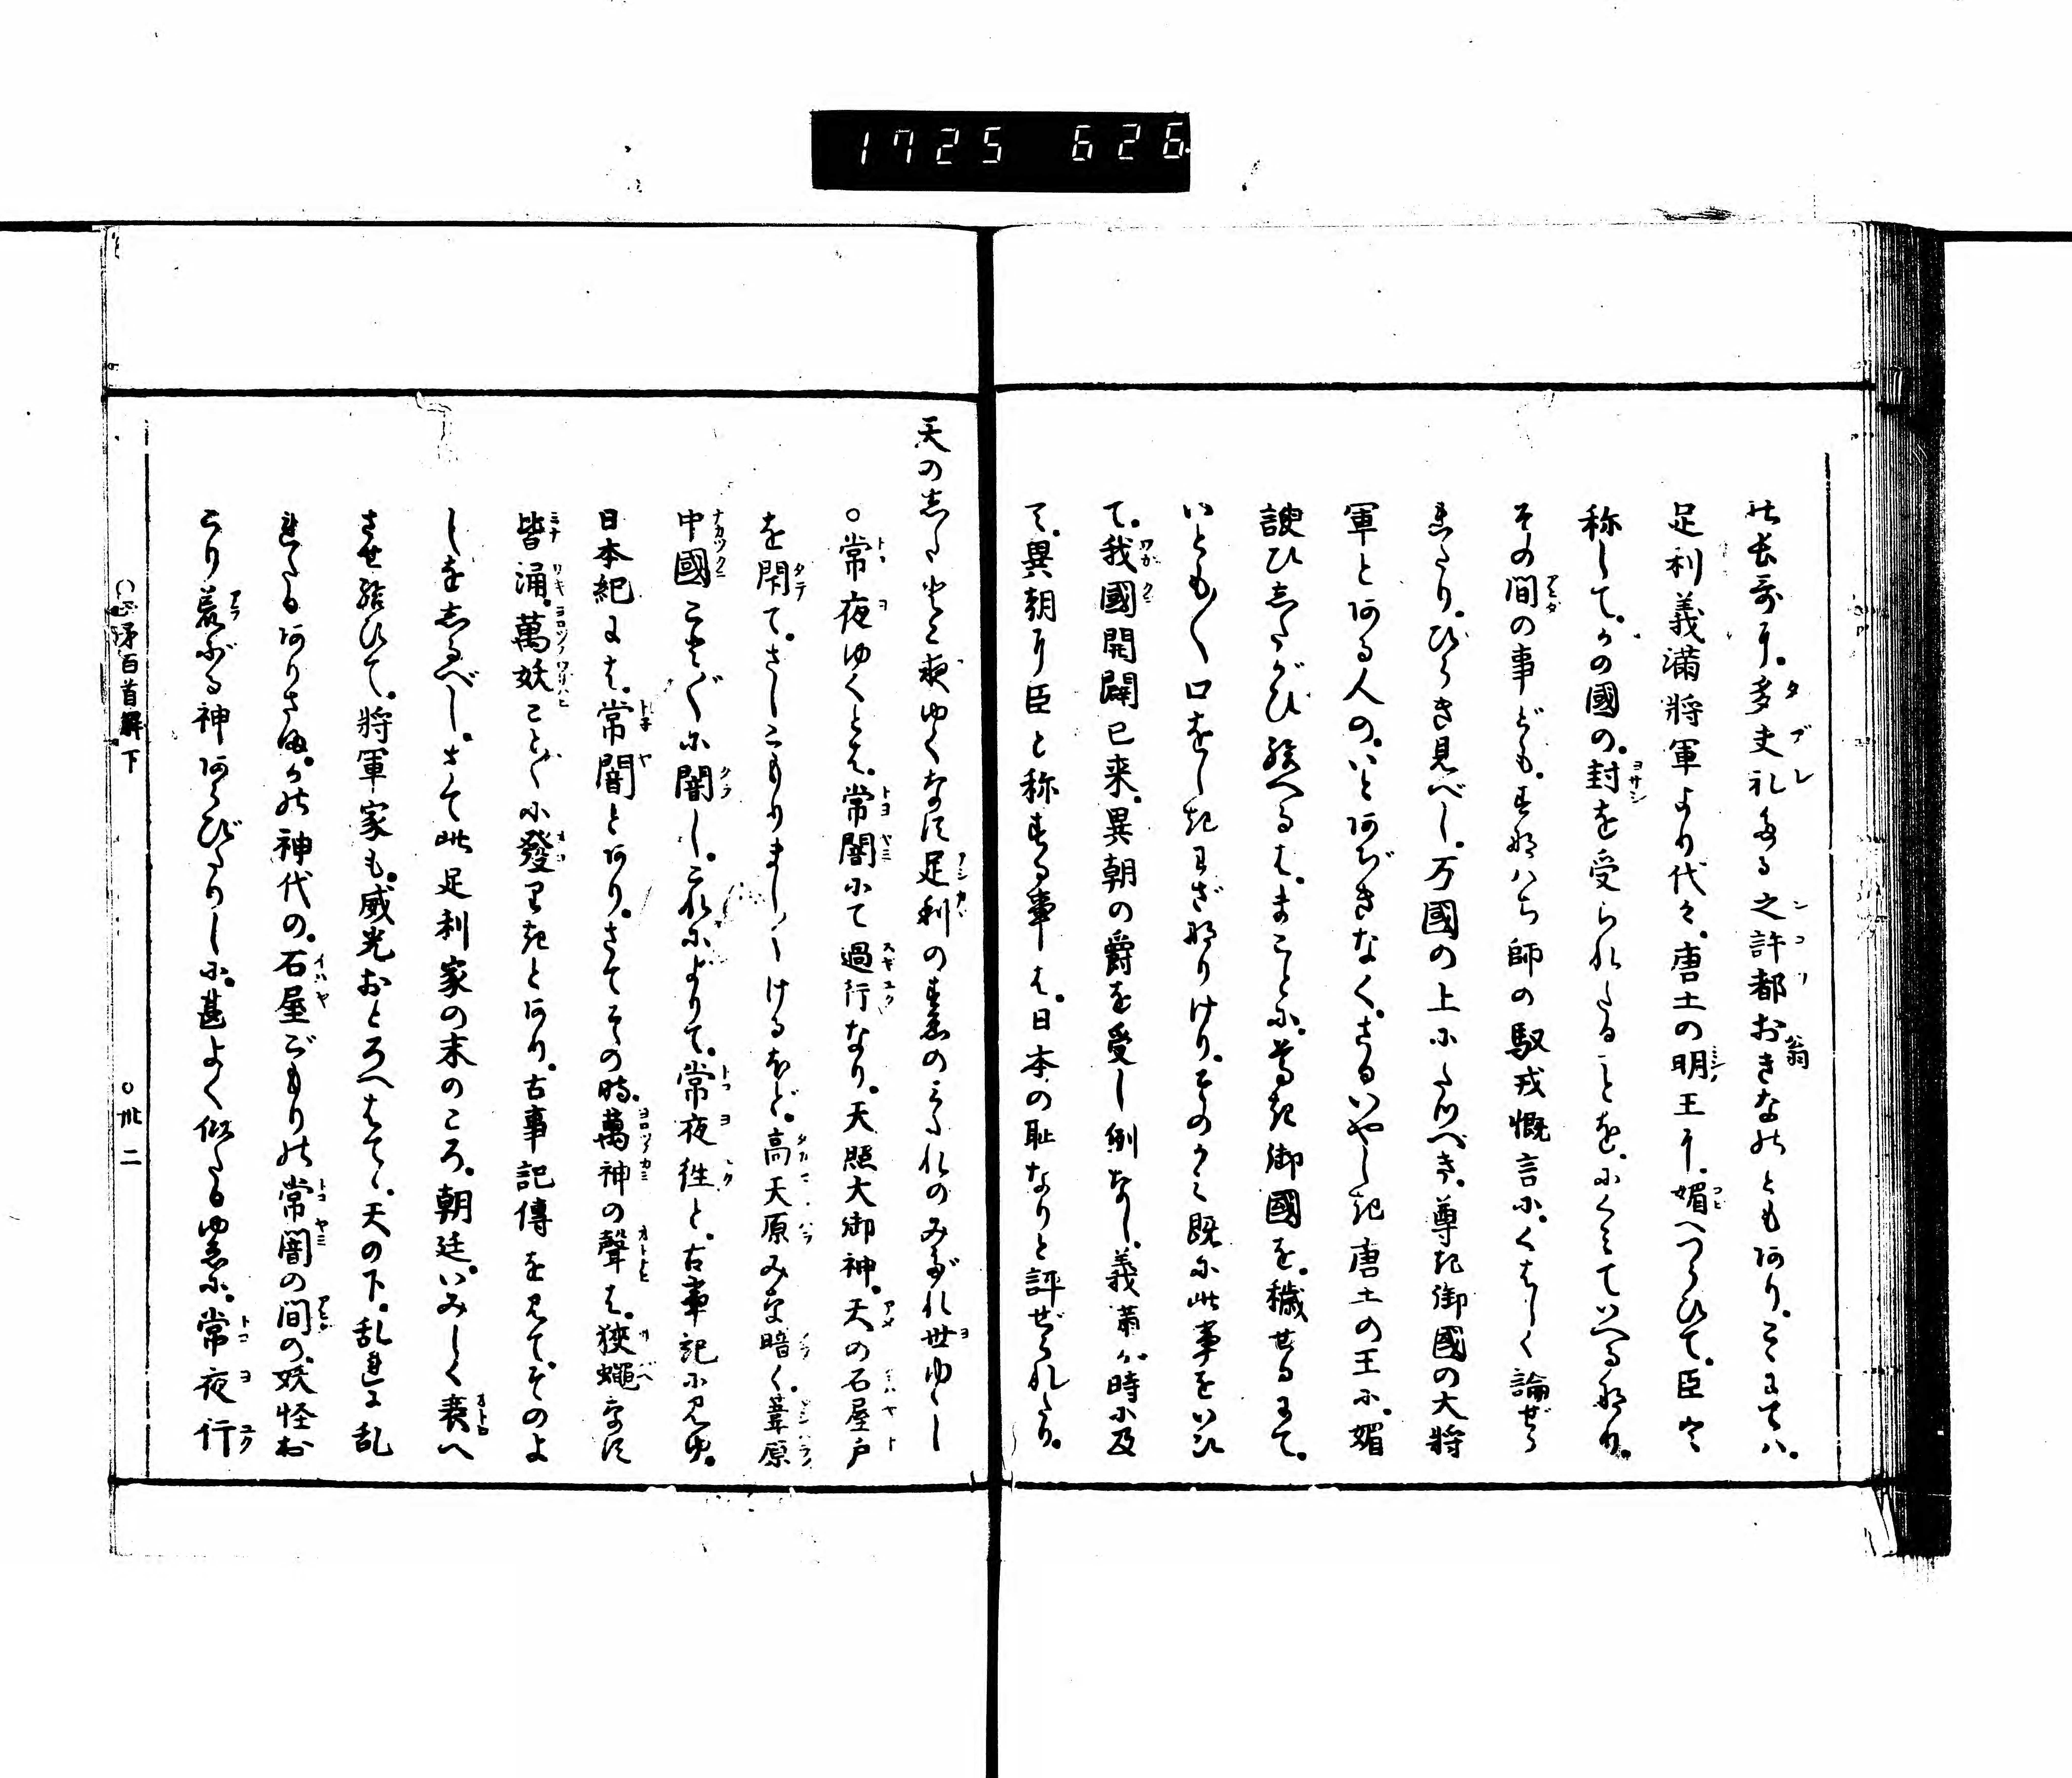 1725 626
の長哥に。多夫礼たる之許都おきなのともあり。こゝにては。
足利義満将軍より代々。唐土の明王に。媚へつらひて。臣と
称して。かの國の。封を受られたることを。にくみていへる也。
その間の事ども。すなはち師の馭戎慨言に。くはしく論ぜら
れたり。ひらき見べし。万國の上にたつべき。尊き御國の大将
軍とある人の。いとあぢきなく。さるいやしき唐土の王に。媚
諛ひしたがひ給へるは。まことに。尊き御國を。穢せるにて。
いとも〳〵口をしきわざなりけり。そのかみ既に此事をいひ
て。我國開闢已来。異朝の爵を受し例なし。義満が時に及
て。異朝に臣と称する事は。日本の耻なりと評ぜられたり。
天の下はとこ夜ゆくなす足利のすゑのみだれのみだれ世ゆゝし
○常夜ゆくとは。常闇にて過行なり。天照大御神。天の石屋戸
を閇て。さしこもりまし〳〵けるほど。高天原みな暗く。葦原
中國こと〴〵に闇し。これによりて。常夜往と。古事記に見ゆ。
日本紀には。常闇とあり。さてその時。萬神の聲は。狭蠅なす
皆涌。萬妖こと〴〵に發りきとあり。古事記傳を見て。そのよ
しをしるべし。さて此足利家の末のころ。朝廷。いみしく衰へ
させ給ひて。将軍家も。威光おとろへはてゝ。天の下。乱れに乱
れたるありさま。かの神代の。石屋ごもりの常闇の間の。妖怪お
こり荒ぶる神あらびたりしに。甚よく似たるゆゑに。常夜行
百首解下
○卅二